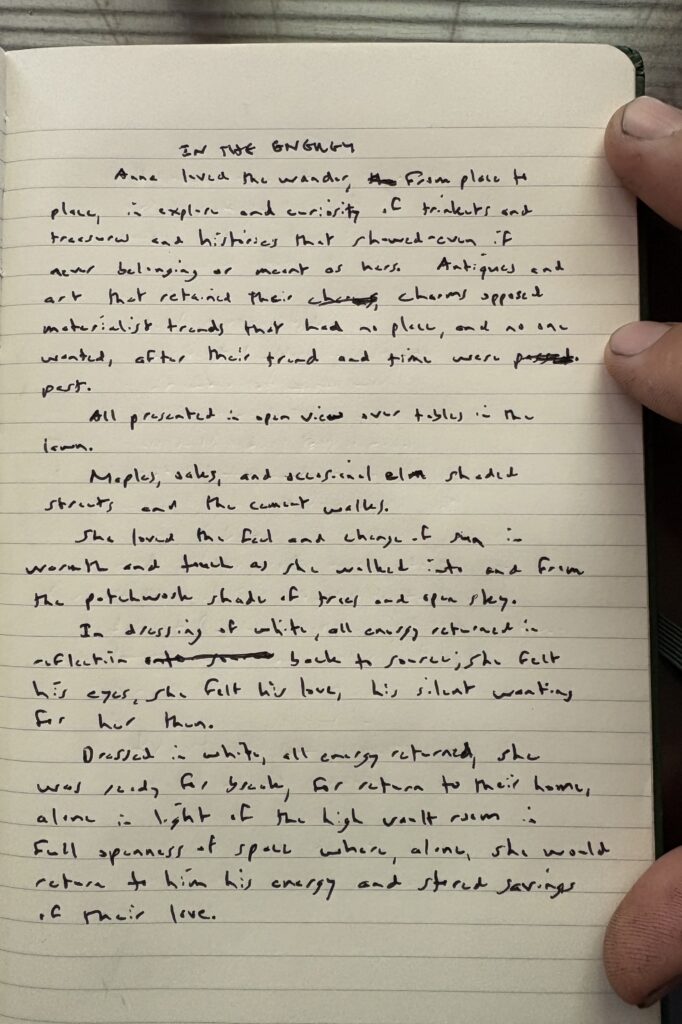 IN THE ENERGY
Anna loved the wander, from place to
place, in explore and curiosity of trinkets and
treasures and histories that showed-even if
never belonging or meant as hers. Antiques and
art that retained their charms opposed
materialist trends that had no place, and no one
wanted, after their trend and time were passed.
past.
All presented in open view over tables in the
lawn.
Maples, oaks, and occasional elm shaded
streets and the cement walks.
She loved the feel and change of sun in
warmth and touch as she walked into and from
the patchwork shade of trees and open sky.
In dressing of white, all energy returned in
reflection back to source; she felt
his eyes, she felt his love, his silent wanting
for her then.
Dressed in white, all energy returned, she
was ready for break, for return to their home,
alone in light of the high vault room in
full openness of space where, alone, she would
return to him his energy and stored savings
of their love.